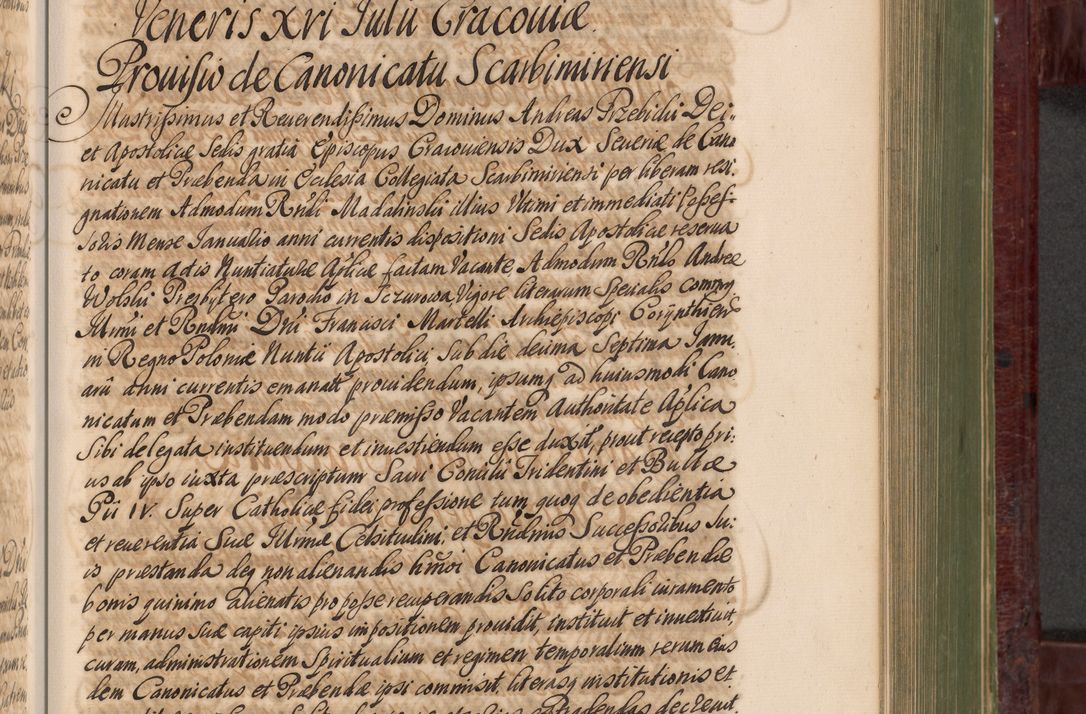 Veneris XVI Julii Cracoviæ.
Provisio de Canonicatu Scarbimiriensi
Illustrissimus et Reverendissimus Dominus Andreas Trzebicki Dei
et Apostolicæ Sedis gratiâ Episcopus Cracoviensis Dux Severiæ de Cano
nicatu et Præbenda in Ecclesia Collegiata Scarbimiriensi per liberam resi
gnationem Admodum Rndi Madalinskii illius Ultimi et immediati Posses-
soris Mense Januario anni currentis dispositioni Sedis Apostolicæ reserva
to coram Actis Nuntiaturæ Aplicæ factam Vacante Admodum Rndo Andreæ
Wolski Presbytero Parocho in Sczurowa Vigore literarum specialis commis
Illrmi et Rndmi Dni Francisci Martelli Archiepiscopi Corynthien
in Regno Poloniæ Nuntii Apostolici, sub die decima Septima Janu,
arii anni currentis emanat providendum, ipsumq ad huiusmodi Cano
nicatum et Præbendam modo præmisso Vacantem Authoritate Aplica
Sibi delegata instituendum et investiendum esse duxit, prout recepto pri:
us ab ipso iuxta præscriptum Sacri Concilii Tridentini et Bullæ
Pii IV. Super Catholicæ fidei professione tum quoq de obedientia
et reverentia Suæ Illrmæ Celsitudini, et Rndmis Successoribus Su:
is præstanda deq non alienandis hmoi Canonicatus et Præbendæ
bonis quinimo alienatis pro posse recuperandis Solito corporali iuramento
per manus suæ capiti ipsius impositionem providit, instituit et investivit,
curam, administrationem Spiritualium et regimen temporalium rerum eius
dem Canonicatus et Præbendæ ipsi commisit, literasq institutionis et
extradendas decrevit.